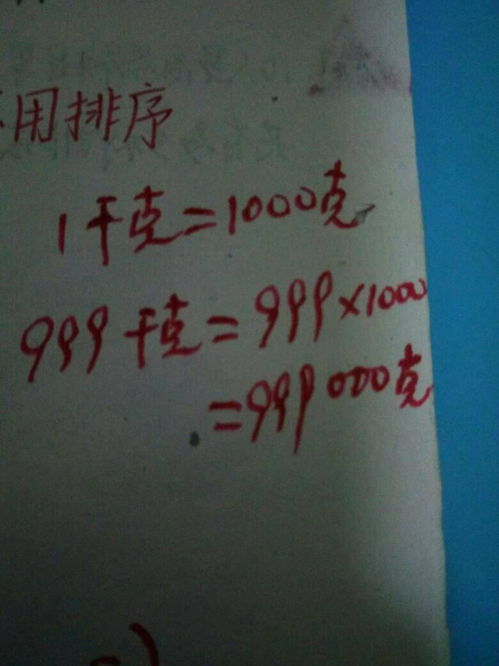 用排序
1千克=1000克
999千克=999×1000
=999000克